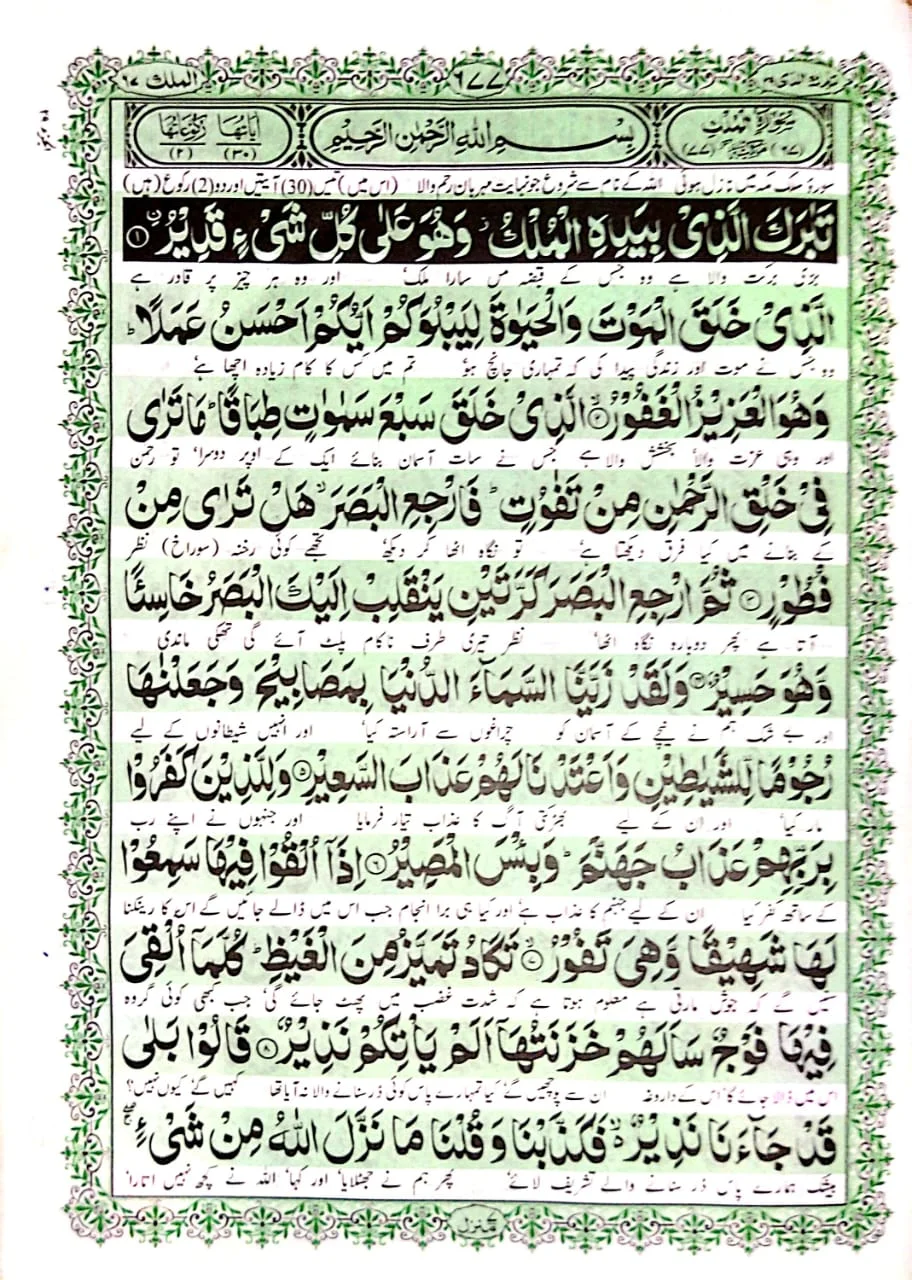 الملك ٦٧
٦٧٧
تبارك الذی ٢٩
اٰیَاتُهَا (٣٠) رُكُوْعَاتُهَا (٢)
بِسْمِ اللّٰهِ الرَّحْمٰنِ الرَّحِیْمِ
سُوْرَةُ الْمُلْكِ (٦٧) مَكِّيَّةٌ (٧٧)
سورۂ ملک مکہ میں نازل ہوئی اللہ کے نام سے شروع جو نہایت مہربان رحم والا (اس میں) تیس (30) آیتیں اور دو (2) رکوع (ہیں)
تَبٰرَكَ الَّذِیْ بِیَدِهِ الْمُلْكُ ز وَهُوَ عَلٰی كُلِّ شَیْءٍ قَدِیْرُ ۨ ﴿١﴾
بڑی برکت والا ہے وہ جس کے قبضہ میں سارا ملک' اور وہ ہر چیز پر قادر ہے
الَّذِیْ خَلَقَ الْمَوْتَ وَالْحَیٰوةَ لِیَبْلُوَكُمْ اَیُّكُمْ اَحْسَنُ عَمَلًا ؕ
وہ جس نے موت اور زندگی پیدا کی کہ تمہاری جانچ ہو' تم میں کس کا کام زیادہ اچھا ہے'
وَهُوَ الْعَزِیْزُ الْغَفُوْرُ ﴿٢﴾ الَّذِیْ خَلَقَ سَبْعَ سَمٰوٰتٍ طِبَاقًا ؕ مَا تَرٰی
اور وہی عزت والا' بخشش والا ہے جس نے سات آسمان بنائے ایک کے اوپر دوسرا' تو رحمن
فِیْ خَلْقِ الرَّحْمٰنِ مِنْ تَفٰوُتٍ ؕ فَارْجِعِ الْبَصَرَ ۙ هَلْ تَرٰی مِنْ
کے بنانے میں کیا فرق دیکھتا ہے' تو نگاہ اٹھا کر دیکھ' تجھے کوئی رخنہ (سوراخ) نظر
فُطُوْرٍ ﴿٣﴾ ثُمَّ ارْجِعِ الْبَصَرَ كَرَّتَیْنِ یَنْقَلِبْ اِلَیْكَ الْبَصَرُ خَاسِئًا
آتا ہے پھر دوبارہ نگاہ اٹھا' نظر تیری طرف ناکام پلٹ آئے گی تھکی ماندی
وَّهُوَ حَسِیْرٌ ﴿٤﴾ وَلَقَدْ زَیَّنَّا السَّمَآءَ الدُّنْیَا بِمَصَابِیْحَ وَجَعَلْنٰهَا
اور بے شک ہم نے نیچے کے آسمان کو چراغوں سے آراستہ کیا' اور انہیں شیطانوں کے لیے
رُجُوْمًا لِّلشَّیٰطِیْنِ وَاَعْتَدْنَا لَهُمْ عَذَابَ السَّعِیْرِ ﴿٥﴾ وَلِلَّذِیْنَ كَفَرُوْا
مار کیا' اور ان کے لیے بھڑکتی آگ کا عذاب تیار فرمایا اور جنہوں نے اپنے رب
بِرَبِّهِمْ عَذَابُ جَهَنَّمَ ؕ وَبِئْسَ الْمَصِیْرُ ﴿٦﴾ اِذَاۤ اُلْقُوْا فِیْهَا سَمِعُوْا
کے ساتھ کفر کیا ان کے لیے جہنم کا عذاب ہے' اور کیا ہی برا انجام جب اس میں ڈالے جائیں گے اس کا رینکنا
لَهَا شَهِیْقًا وَّهِیَ تَفُوْرُ ﴿٧﴾ تَكَادُ تَمَیَّزُ مِنَ الْغَیْظِ ؕ كُلَّمَاۤ اُلْقِیَ
سنیں گے کہ جوش مارتی ہے معلوم ہوتا ہے کہ شدت غضب میں پھٹ جائے گی' جب کبھی کوئی گروہ
فِیْهَا فَوْجٌ سَاَلَهُمْ خَزَنَتُهَاۤ اَلَمْ یَاْتِكُمْ نَذِیْرٌ ﴿٨﴾ قَالُوْا بَلٰی
اس میں ڈالا جائے گا' اس کے داروغہ ان سے پوچھیں گے' کیا تمہارے پاس کوئی ڈر سنانے والا نہ آیا تھا کہیں گے' کیوں نہیں؟
قَدْ جَآءَنَا نَذِیْرٌ ۙ فَكَذَّبْنَا وَقُلْنَا مَا نَزَّلَ اللّٰهُ مِنْ شَیْءٍ ۖۚ
بیشک ہمارے پاس ڈر سنانے والے تشریف لائے' پھر ہم نے جھٹلایا' اور کہا' اللہ نے کچھ نہیں اتارا'
منزل